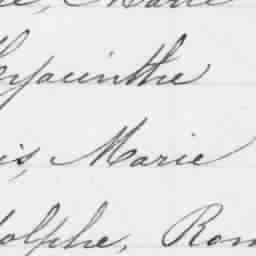 Marie
Hyacinthe
is, Marie
dolphe, Rom